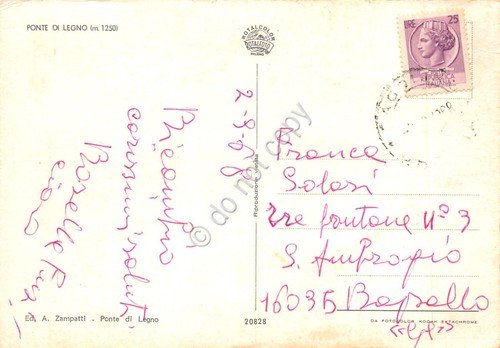 PONTE DI LEGNO (m. 1250)
ROTALCOLOR
ROTALFOTO
MILANO
LIRE 25
2-9-68
Ricambio
carissimi saluti
Rosella
ciao
Riproduzione vietata
Franca
Solari
Tre fontane n° 3
S. Ambrogio
16035 Rapallo
Ed. A. Zampatti - Ponte di Legno
20828
DA FOTOCOLOR KODAK EKTACHROME
© do not copy